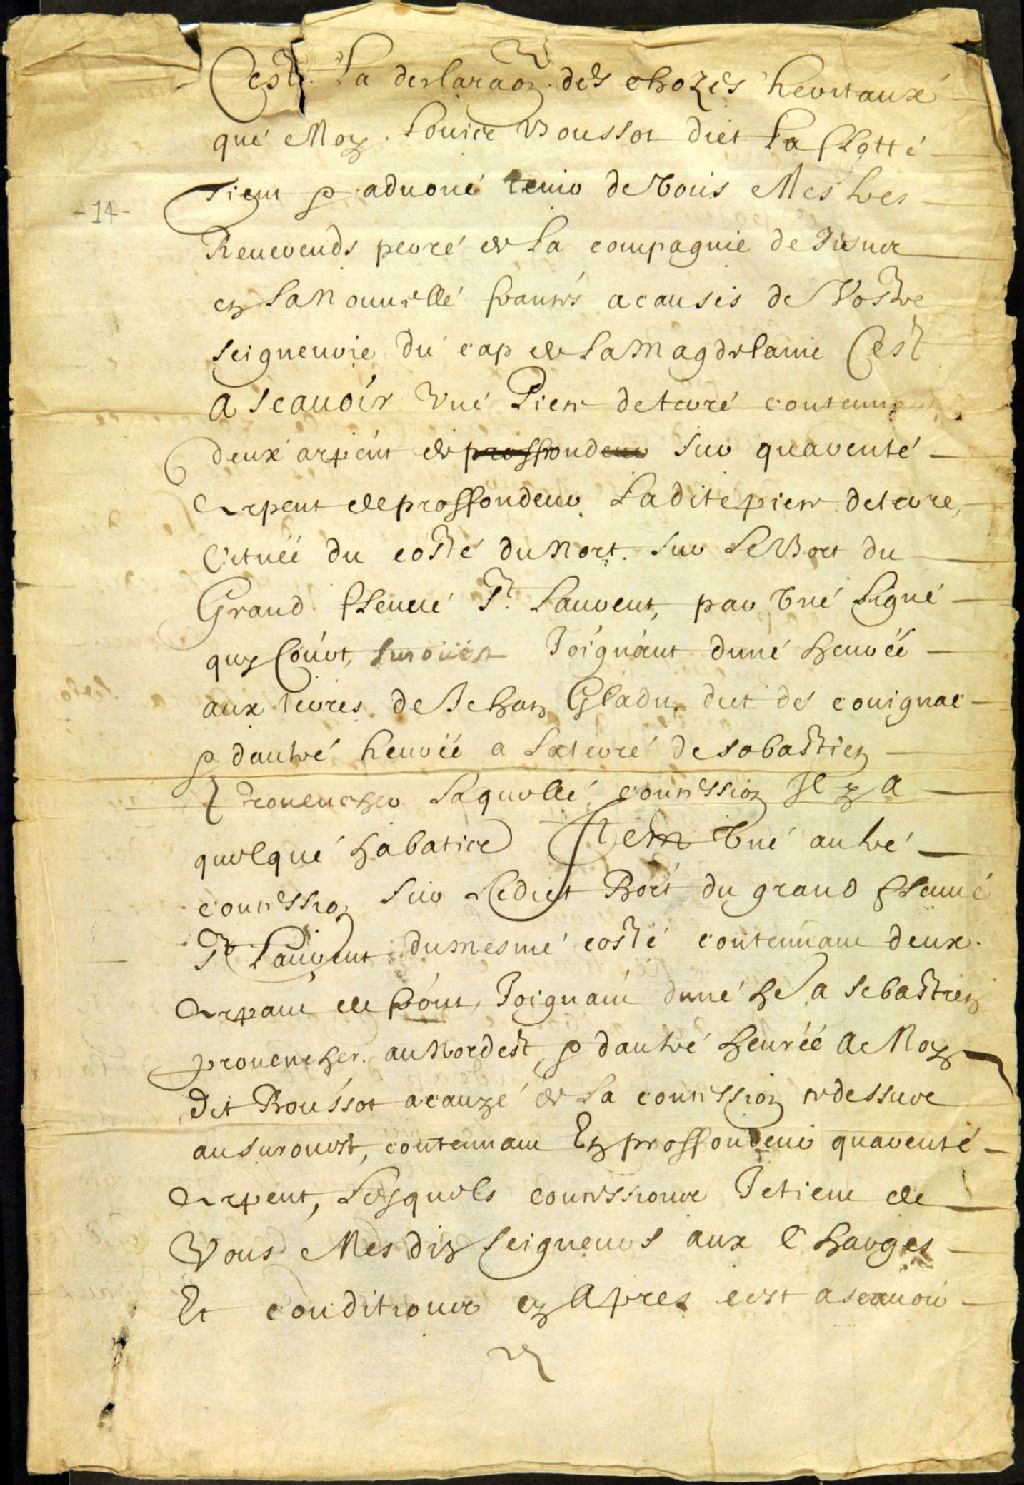 Cest la declaraon des chozes heritaux
que Moy. Louice Boussot diet la flotte
tiens p advoué tenir de Vous Mes tres
Reverends perre de la compagnie de Jesus
en la Nouvelle frances a causes de Vostre
seigneurie du cap de la Magdelaine Cest
a scavoir Une Piece de terre contenant
deux arpent de proffondeur sur quarente
arpent de proffondeur Ladite piece de terre
Cituée du costé du Nort. sur Le Bort du
Grand ffleuve St. Laurent, par Une Ligne
quy Court, surouest Joignant dune heurée
aux terres de Jehan Gladu diet de couignac
p dautre heurée a La terre de sebastien
provencher Laquelle concession Jl y A
quelque habatice Jtem Une autre
concession sur Ledict Bort du grand ffleuve
St Laurent du mesme costé contenant deux
arpant de front, Joignant dune he a sebastien
provencher. au Nordest p dautre heurée A Moy
Dit Boussot a cauze de La concession cy dessure
au surouest, contenant En proffondeur quarente
arpent, Lesquels concessions Je tiens de
Vous Mes diz seigneurs aux Charges
Et conditions cy Apres cest a scavoir
-14-